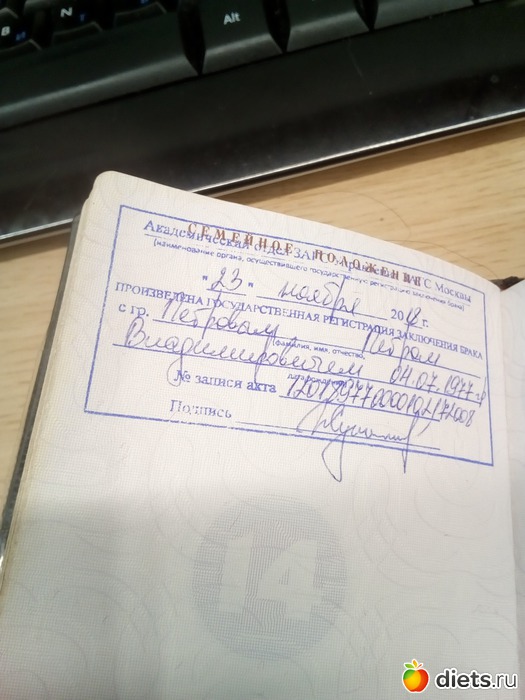 Alt
B
N
СЕМЕЙНОЕ ПОЛОЖЕНИЕ
Академический отдел ЗАГС Москвы
(наименование органа, осуществившего государственную регистрацию заключения брака)
"23" ноября 20 г.
ПРОИЗВЕДЕНА ГОСУДАРСТВЕННАЯ РЕГИСТРАЦИЯ ЗАКЛЮЧЕНИЯ БРАКА
с гр. Петровым Петром
(фамилия, имя, отчество,
Владимировичем 04.07.1977
№ записи акта
Подпись
14
diets.ru